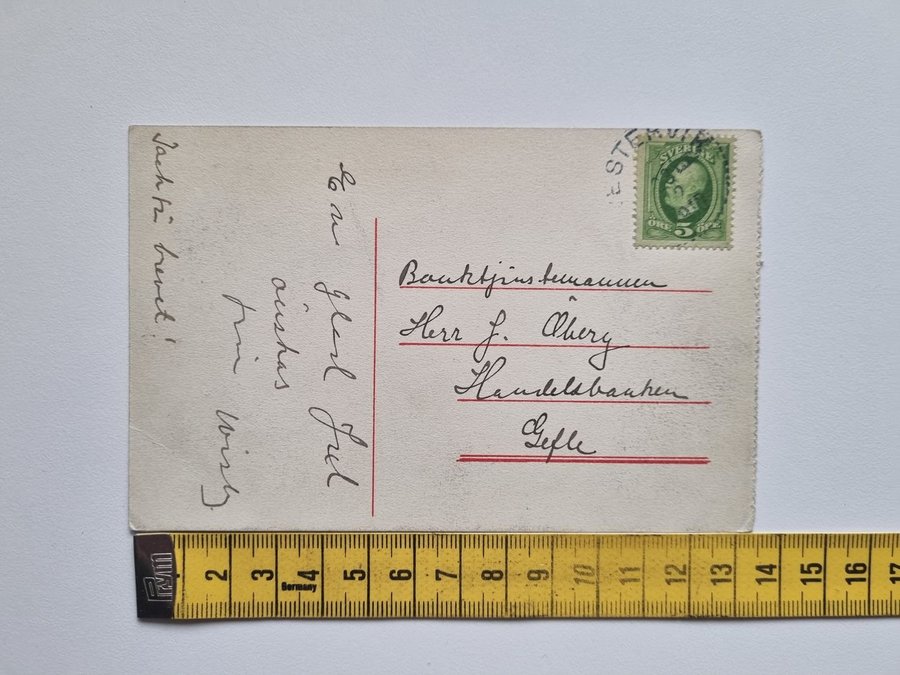 Tack för brevet!
En glad Jul
önskas
från Wisby
ESTERVIK
SVERIGE
ÖRE 5 ÖRE
Banktjänstemannen
Herr J. Öberg
Handelsbanken
Gefle
2 3 4 5 6 7 8 9 10 11 12 13 14 15 16 17
Germany